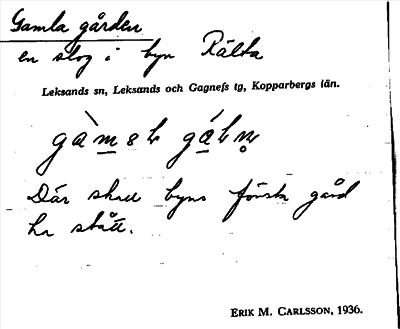 Gamla gården
en slog i byn Rälta
Leksands sn, Leksands och Gagnefs tg, Kopparbergs län.
Där skall byns första gård
ha stått.
ERIK M. CARLSSON, 1936.